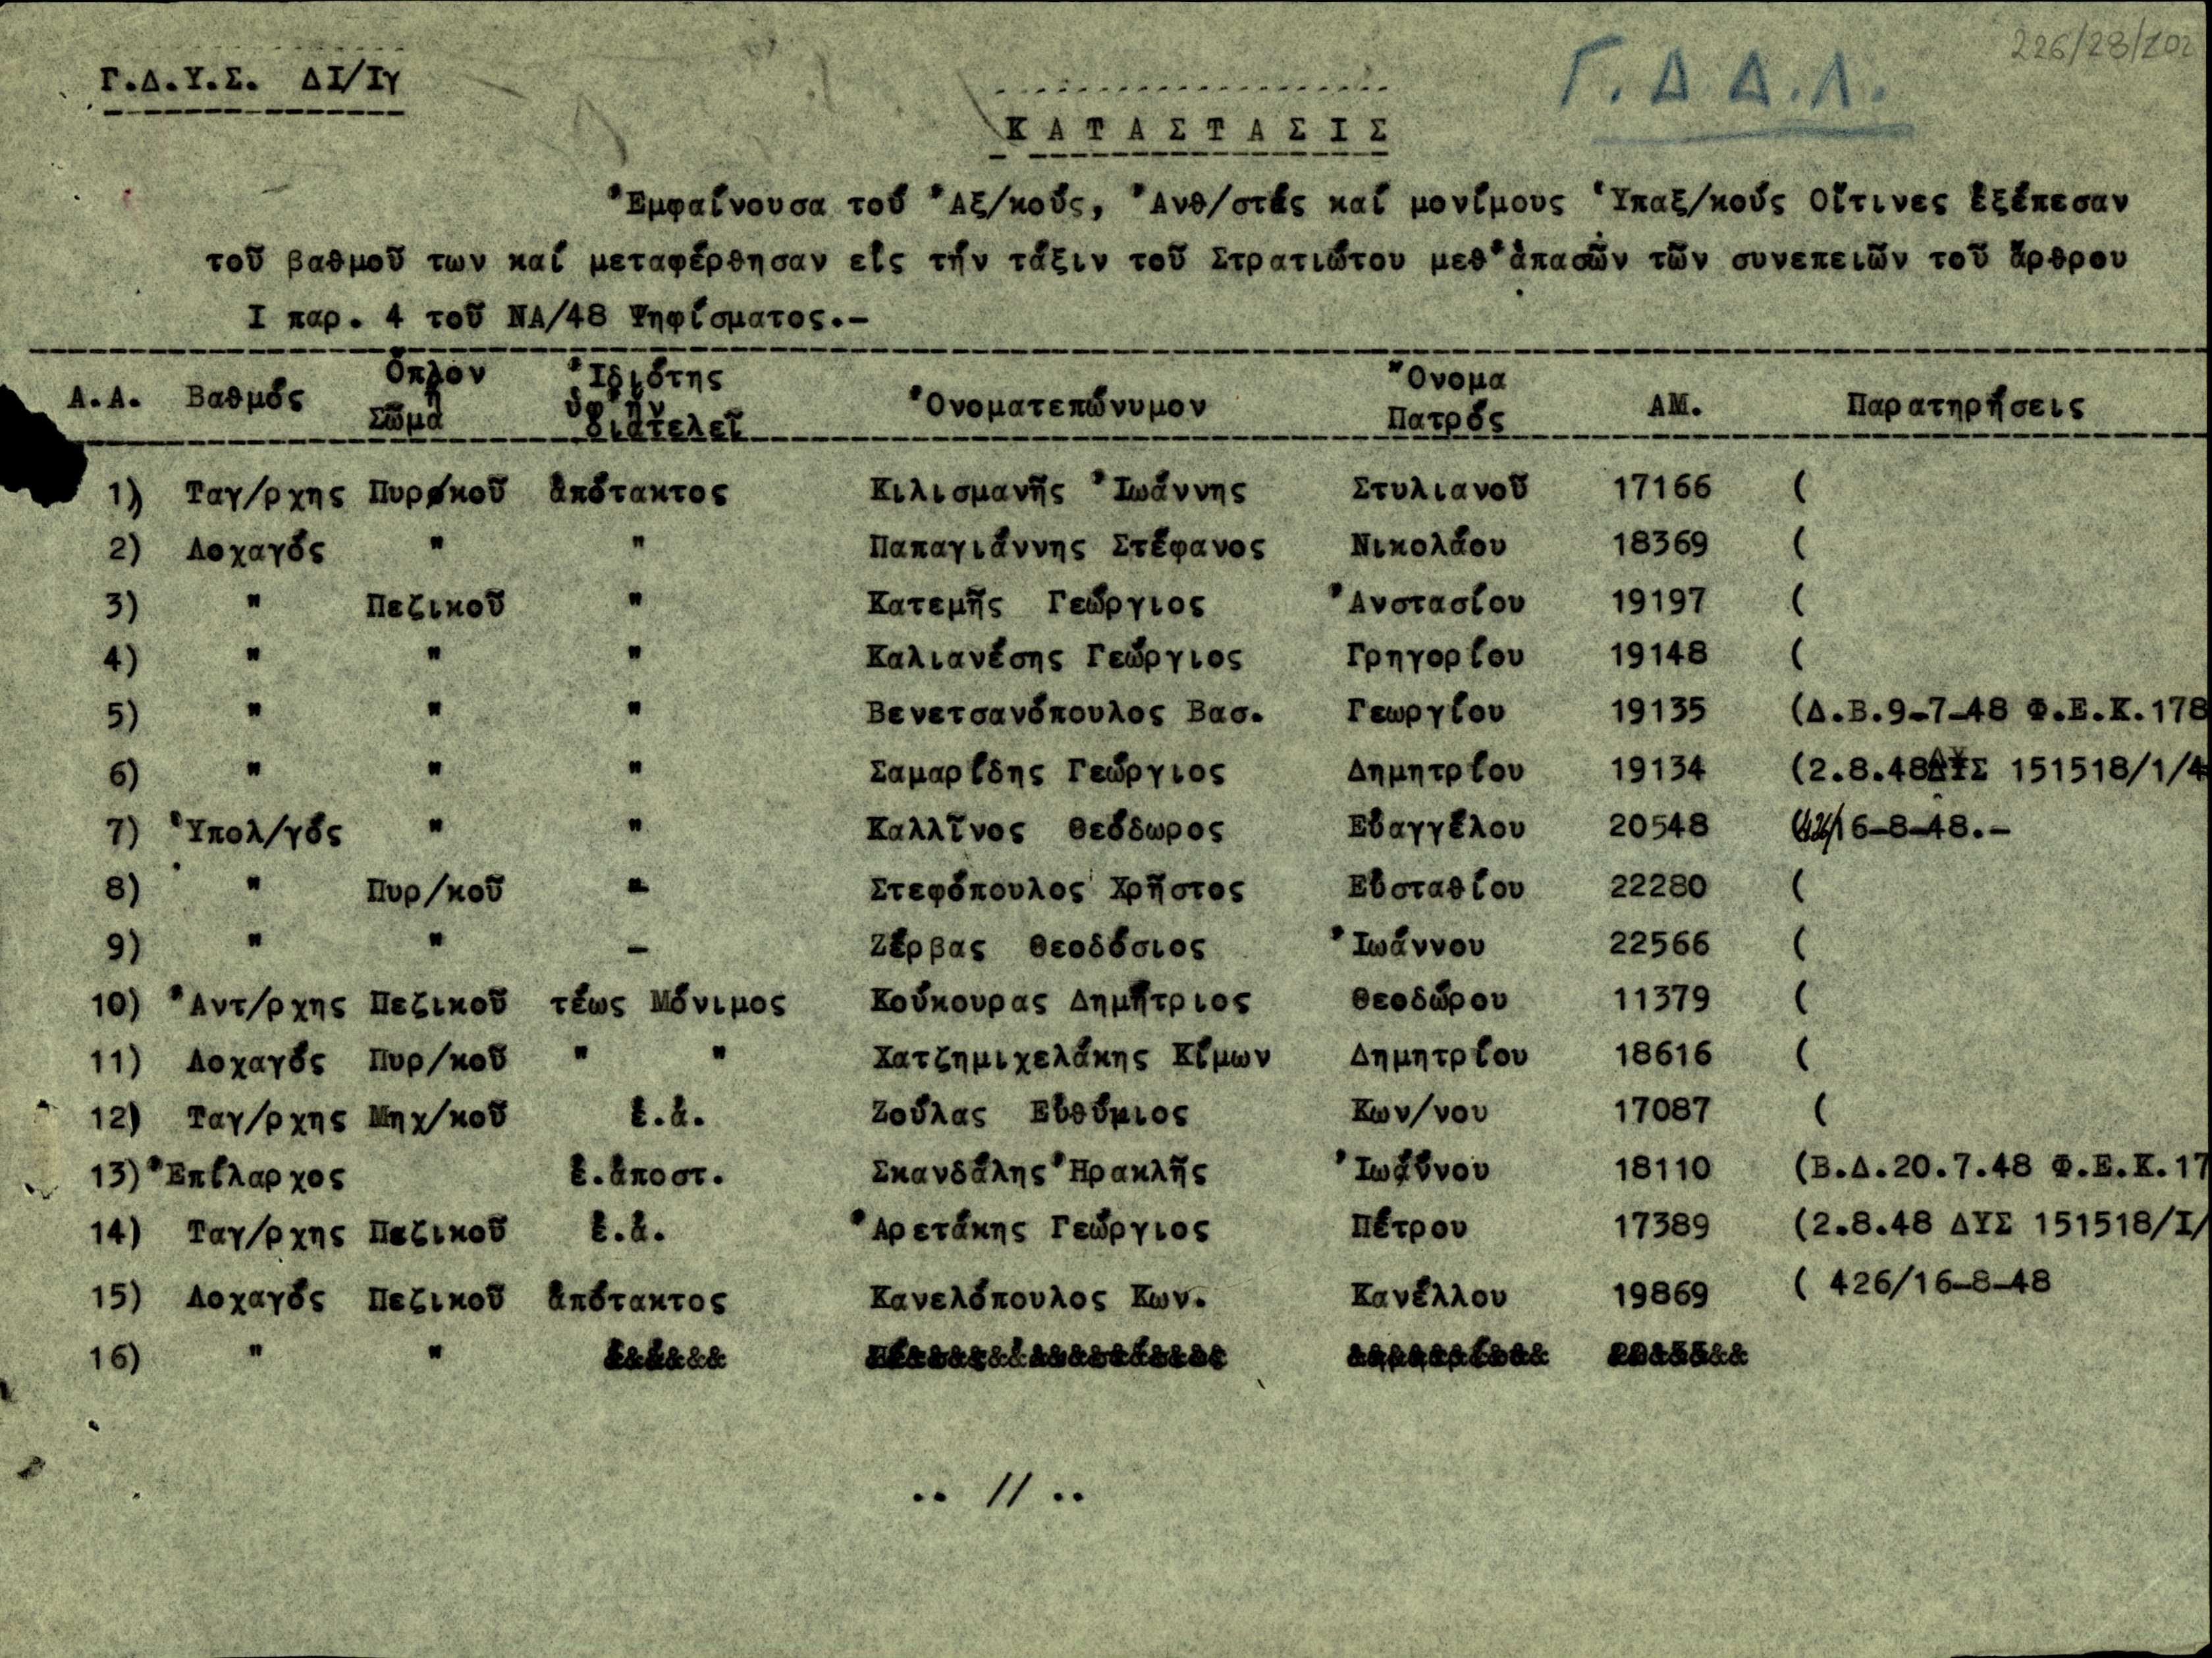 226/28/202
Γ.Δ.Υ.Σ. ΔΙ/Ιγ
Γ.Δ Δ.Λ.
Κ Α Τ Α Σ Τ Α Σ Ι Σ
Ἐμφαίνουσα τού Ἀξ/κούς, Ἀνθ/στάς καί μονίμους Ὑπαξ/κούς Οἵτινες ἐξέπεσαν
τοῦ βαθμοῦ των καί μεταφέρθησαν εἰς τήν τάξιν τοῦ Στρατιώτου μεθ'ἁπασῶν τῶν συνεπειῶν τοῦ ἄρθρου
Ι παρ. 4 τοῦ ΝΑ/48 Ψηφίσματος.-
Α.Α. Βαθμός Ὅπλον ἤ Σῶμα Ἰδιότης ὑφ'ἥν διατελεῖ Ὀνοματεπώνυμον Ὄνομα Πατρός ΑΜ. Παρατηρήσεις
1) Ταγ/ρχης Πυρ/κοῦ ἀπότακτος Κιλισμανῆς Ἰωάννης Στυλιανοῦ 17166 (
2) Λοχαγός " " Παπαγιάννης Στέφανος Νικολάου 18369 (
3) " Πεζικοῦ " Κατεμῆς Γεώργιος Ἀνστασίου 19197 (
4) " " " Καλιανέσης Γεώργιος Γρηγορίου 19148 (
5) " " " Βενετσανόπουλος Βασ. Γεωργίου 19135 (Δ.Β.9-7-48 Φ.Ε.Κ.178
6) " " " Σαμαρίδης Γεώργιος Δημητρίου 19134 (2.8.48 ΔΥΣ 151518/1/4
7) Ὑπολ/γός " " Καλλῖνος Θεόδωρος Εὐαγγέλου 20548 (426/16-8-48.-
8) " Πυρ/κοῦ " Στεφόπουλος Χρῆστος Εὐσταθίου 22280 (
9) " " - Ζέρβας Θεοδόσιος Ἰωάννου 22566 (
10) Ἀντ/ρχης Πεζικοῦ τέως Μόνιμος Κούκουρας Δημήτριος Θεοδώρου 11379 (
11) Λοχαγός Πυρ/κοῦ " " Χατζημιχελάκης Κίμων Δημητρίου 18616 (
12) Ταγ/ρχης Μηχ/κοῦ ἐ.ἀ. Ζούλας Εὐθύμιος Κων/νου 17087 (
13) Ἐπίλαρχος ἐ.ἀποστ. Σκανδάλης Ἡρακλῆς Ἰωάννου 18110 (Β.Δ.20.7.48 Φ.Ε.Κ.17
14) Ταγ/ρχης Πεζικοῦ ἐ.ἀ. Ἀρετάκης Γεώργιος Πέτρου 17389 (2.8.48 ΔΥΣ 151518/Ι/
15) Λοχαγός Πεζικοῦ ἀπότακτος Κανελόπουλος Κων. Κανέλλου 19869 ( 426/16-8-48
16) " "
.. // ..